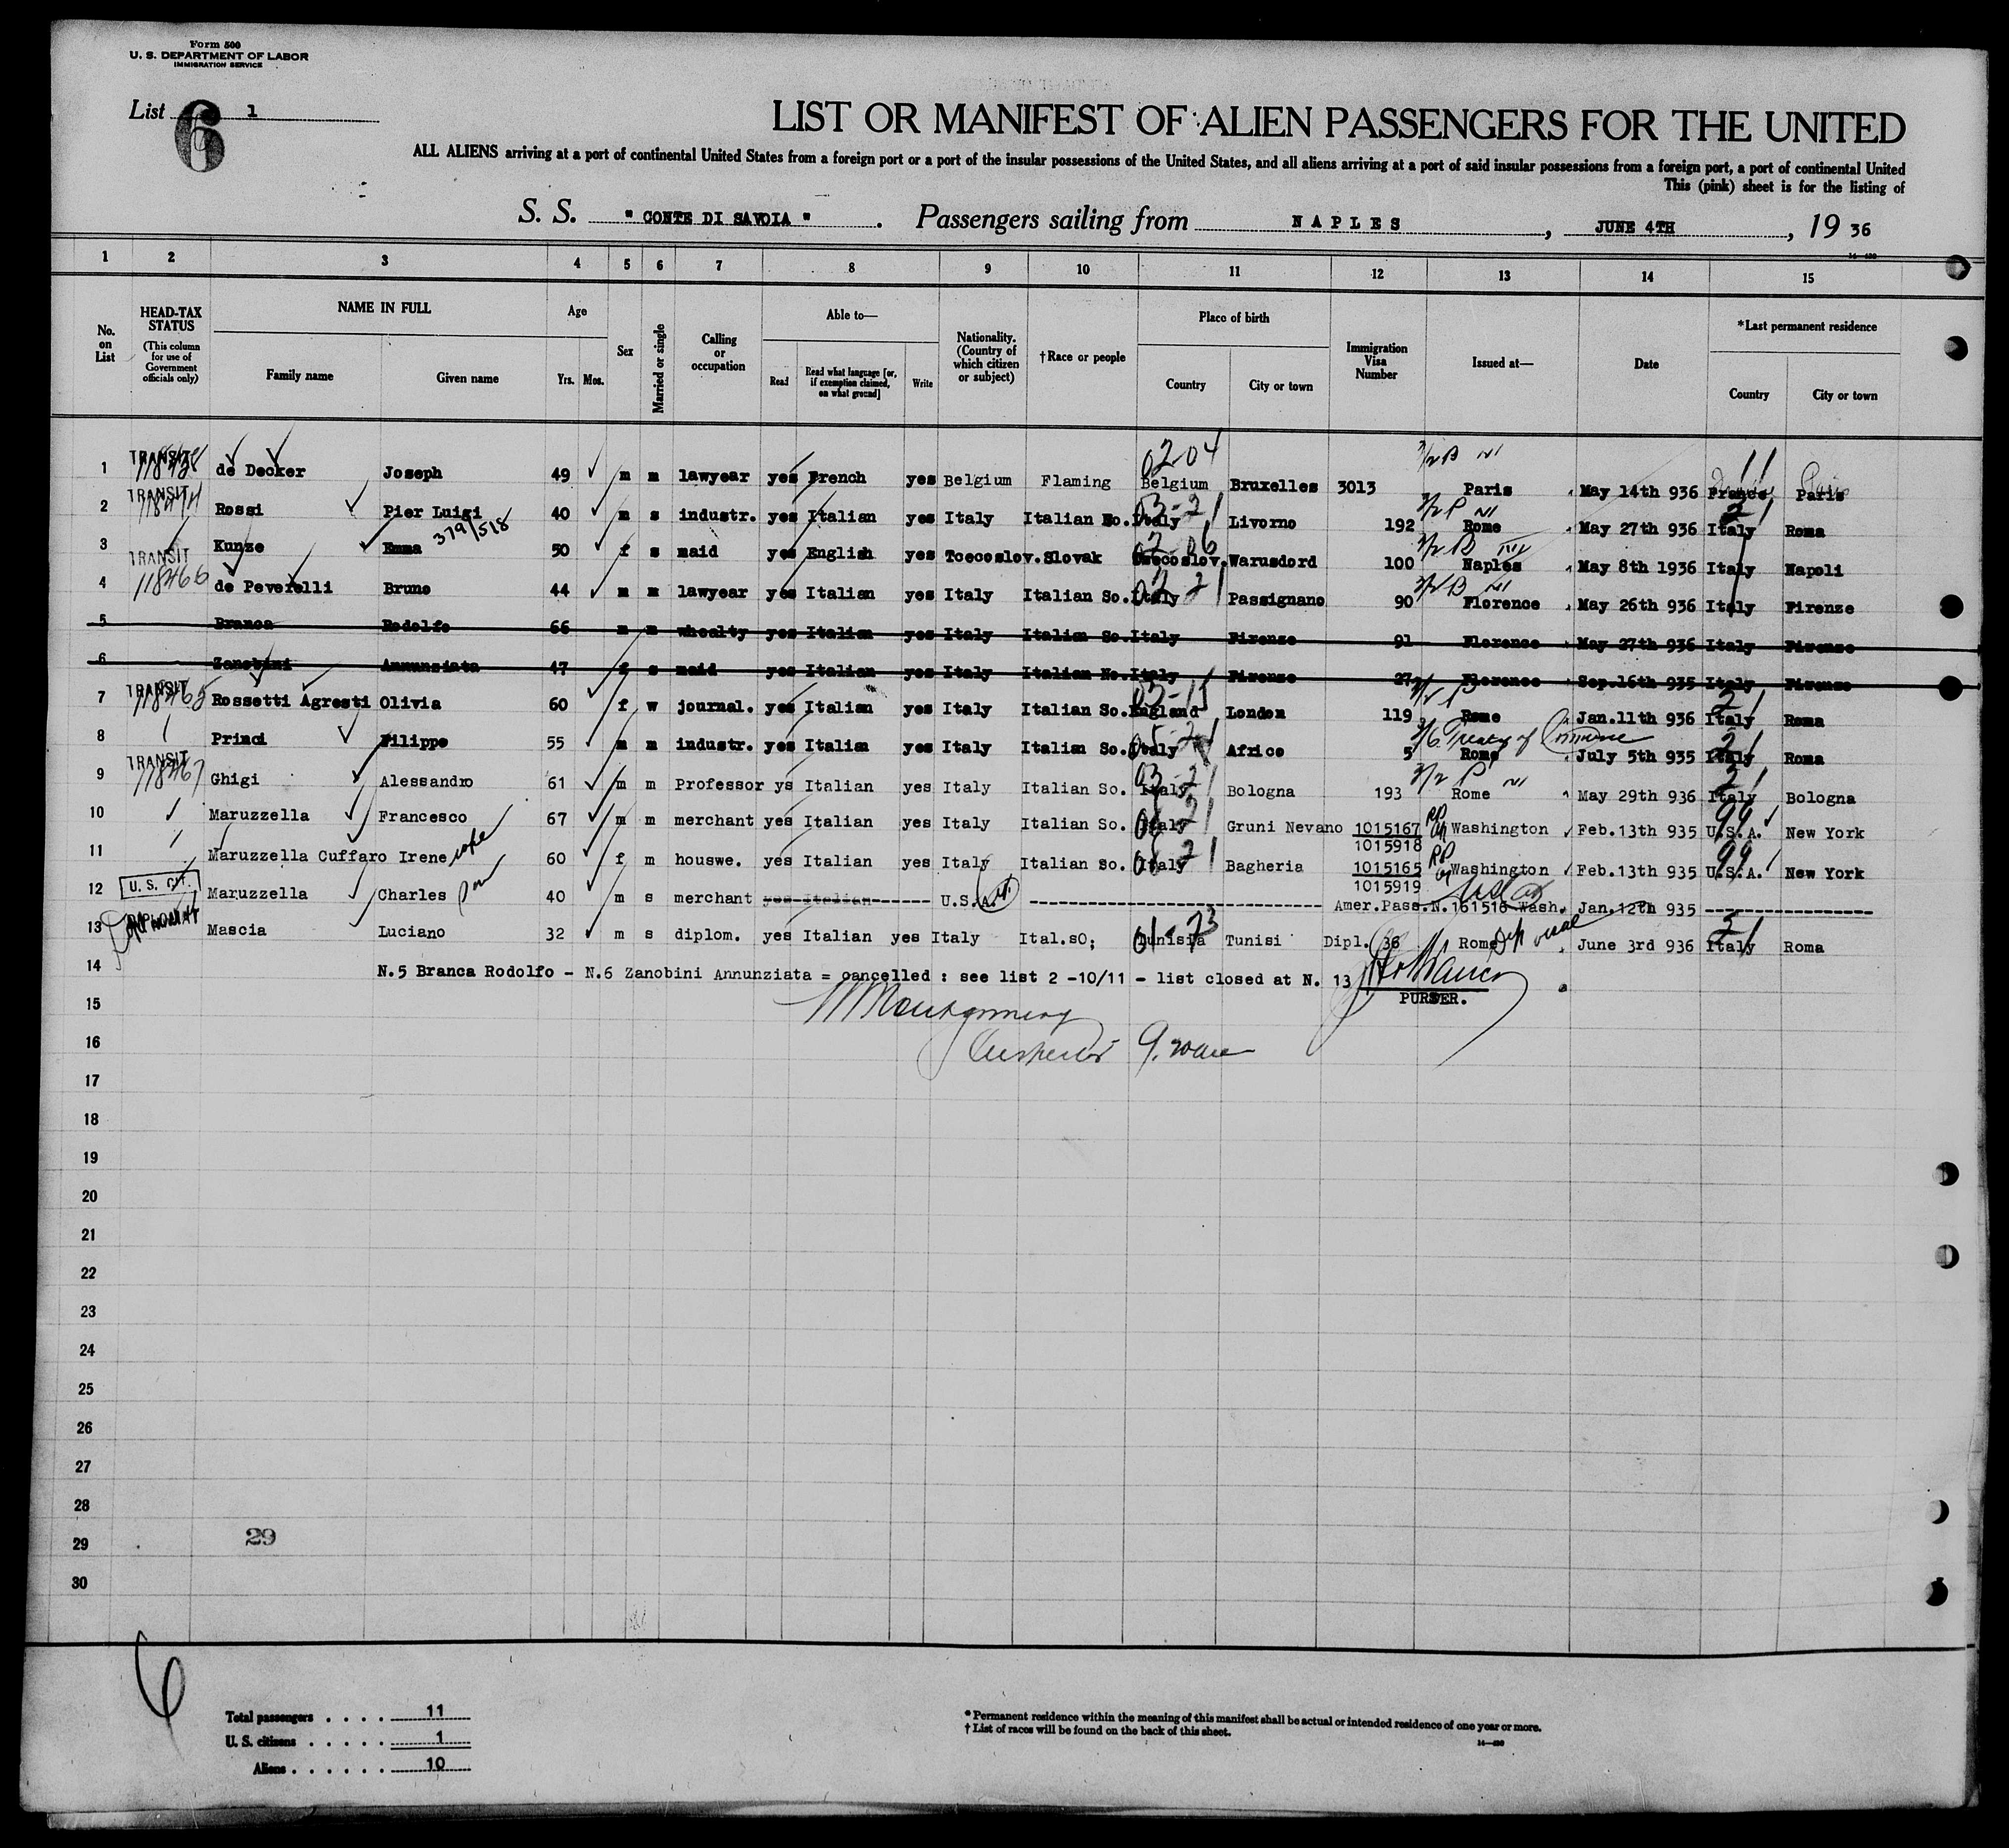 Form 500
U. S. DEPARTMENT OF LABOR
IMMIGRATION SERVICE
List 6 1
LIST OR MANIFEST OF ALIEN PASSENGERS FOR THE UNITED
ALL ALIENS arriving at a port of continental United States from a foreign port or a port of the insular possessions of the United States, and all aliens arriving at a port of said insular possessions from a foreign port, a port of continental United
This (pink) sheet is for the listing of
S. S. " CONTE DI SAVOIA " . Passengers sailing from NAPLES , JUNE 4TH , 19 36
1 2 3 4 5 6 7 8 9 10 11 12 13 14 15
No. on List
HEAD-TAX STATUS (This column for use of Government officials only)
NAME IN FULL Family name Given name
Age Yrs. Mos.
Sex
Married or single
Calling or occupation
Able to— Read Read what language [or, if exemption claimed, on what ground] Write
Nationality. (Country of which citizen or subject)
†Race or people
Place of birth Country City or town
Immigration Visa Number
Issued at—
Date
*Last permanent residence Country City or town
1 TRANSIT de Decker Joseph 49 m m lawyear yes French yes Belgium Flaming 02-04 Belgium Bruxelles 3013 Paris May 14th 936 France Paris
2 TRANSIT Rossi Pier Luigi 40 m s industr. yes Italian yes Italy Italian No. Italy Livorno 192 Rome May 27th 936 Italy Roma
3 Kunze Emma 379/518 50 f s maid yes English yes Tcecoslov. Slovak Tcecoslov. Warusdord 100 Naples May 8th 1936 Italy Napoli
4 TRANSIT 118466 de Peverelli Bruno 44 m m lawyear yes Italian yes Italy Italian So. Italy Passignano 90 Florence May 26th 936 Italy Firenze
5 Branca Rodolfo 66 m m whealty yes Italian yes Italy Italian So. Italy Firenze 91 Florence May 27th 936 Italy Firenze
6 Zanobini Annunziata 47 f s maid yes Italian yes Italy Italian No. Italy Firenze 27 Florence Sep.16th 935 Italy Firenze
7 TRANSIT 118465 Rossetti Agresti Olivia 60 f w journal. yes Italian yes Italy Italian So. England London 119 Rome Jan.11th 936 Italy Roma
8 Princi Filippo 55 m m industr. yes Italian yes Italy Italian So. Italy Africo 5 Rome 3/6 Treaty of Commerce July 5th 935 Italy Roma
9 TRANSIT 118467 Ghigi Alessandro 61 m m Professor ys Italian yes Italy Italian So. Italy Bologna 193 Rome May 29th 936 Italy Bologna
10 Maruzzella Francesco 67 m m merchant yes Italian yes Italy Italian So. Italy Gruni Nevano 1015167 1015918 RP Washington Feb.13th 935 U.S.A. 99 New York
11 Maruzzella Cuffaro Irene wife 60 f m houswe. yes Italian yes Italy Italian so. Italy Bagheria 1015165 1015919 RP Washington Feb.13th 935 U.S.A. 99 New York
12 U. S. CIT. Maruzzella Charles son 40 m s merchant yes Italian U.S.A. Amer.Pass.N.161516 Wash. Jan.12th 935
13 DIPLOMAT Mascia Luciano 32 m s diplom. yes Italian yes Italy Ital.sO; Tunisia Tunisi Dipl. 36 Rome Dip visa June 3rd 936 Italy Roma
14 N.5 Branca Rodolfo - N.6 Zanobini Annunziata = cancelled : see list 2 -10/11 - list closed at N. 13
15 PURSER.
Montgomery
16 Inspector
17
18
19
20
21
22
23
24
25
26
27
28
29 29
30
6
Total passengers . . . . 11
U. S. citizens . . . . . 1
Aliens . . . . . . 10
* Permanent residence within the meaning of this manifest shall be actual or intended residence of one year or more.
† List of races will be found on the back of this sheet.